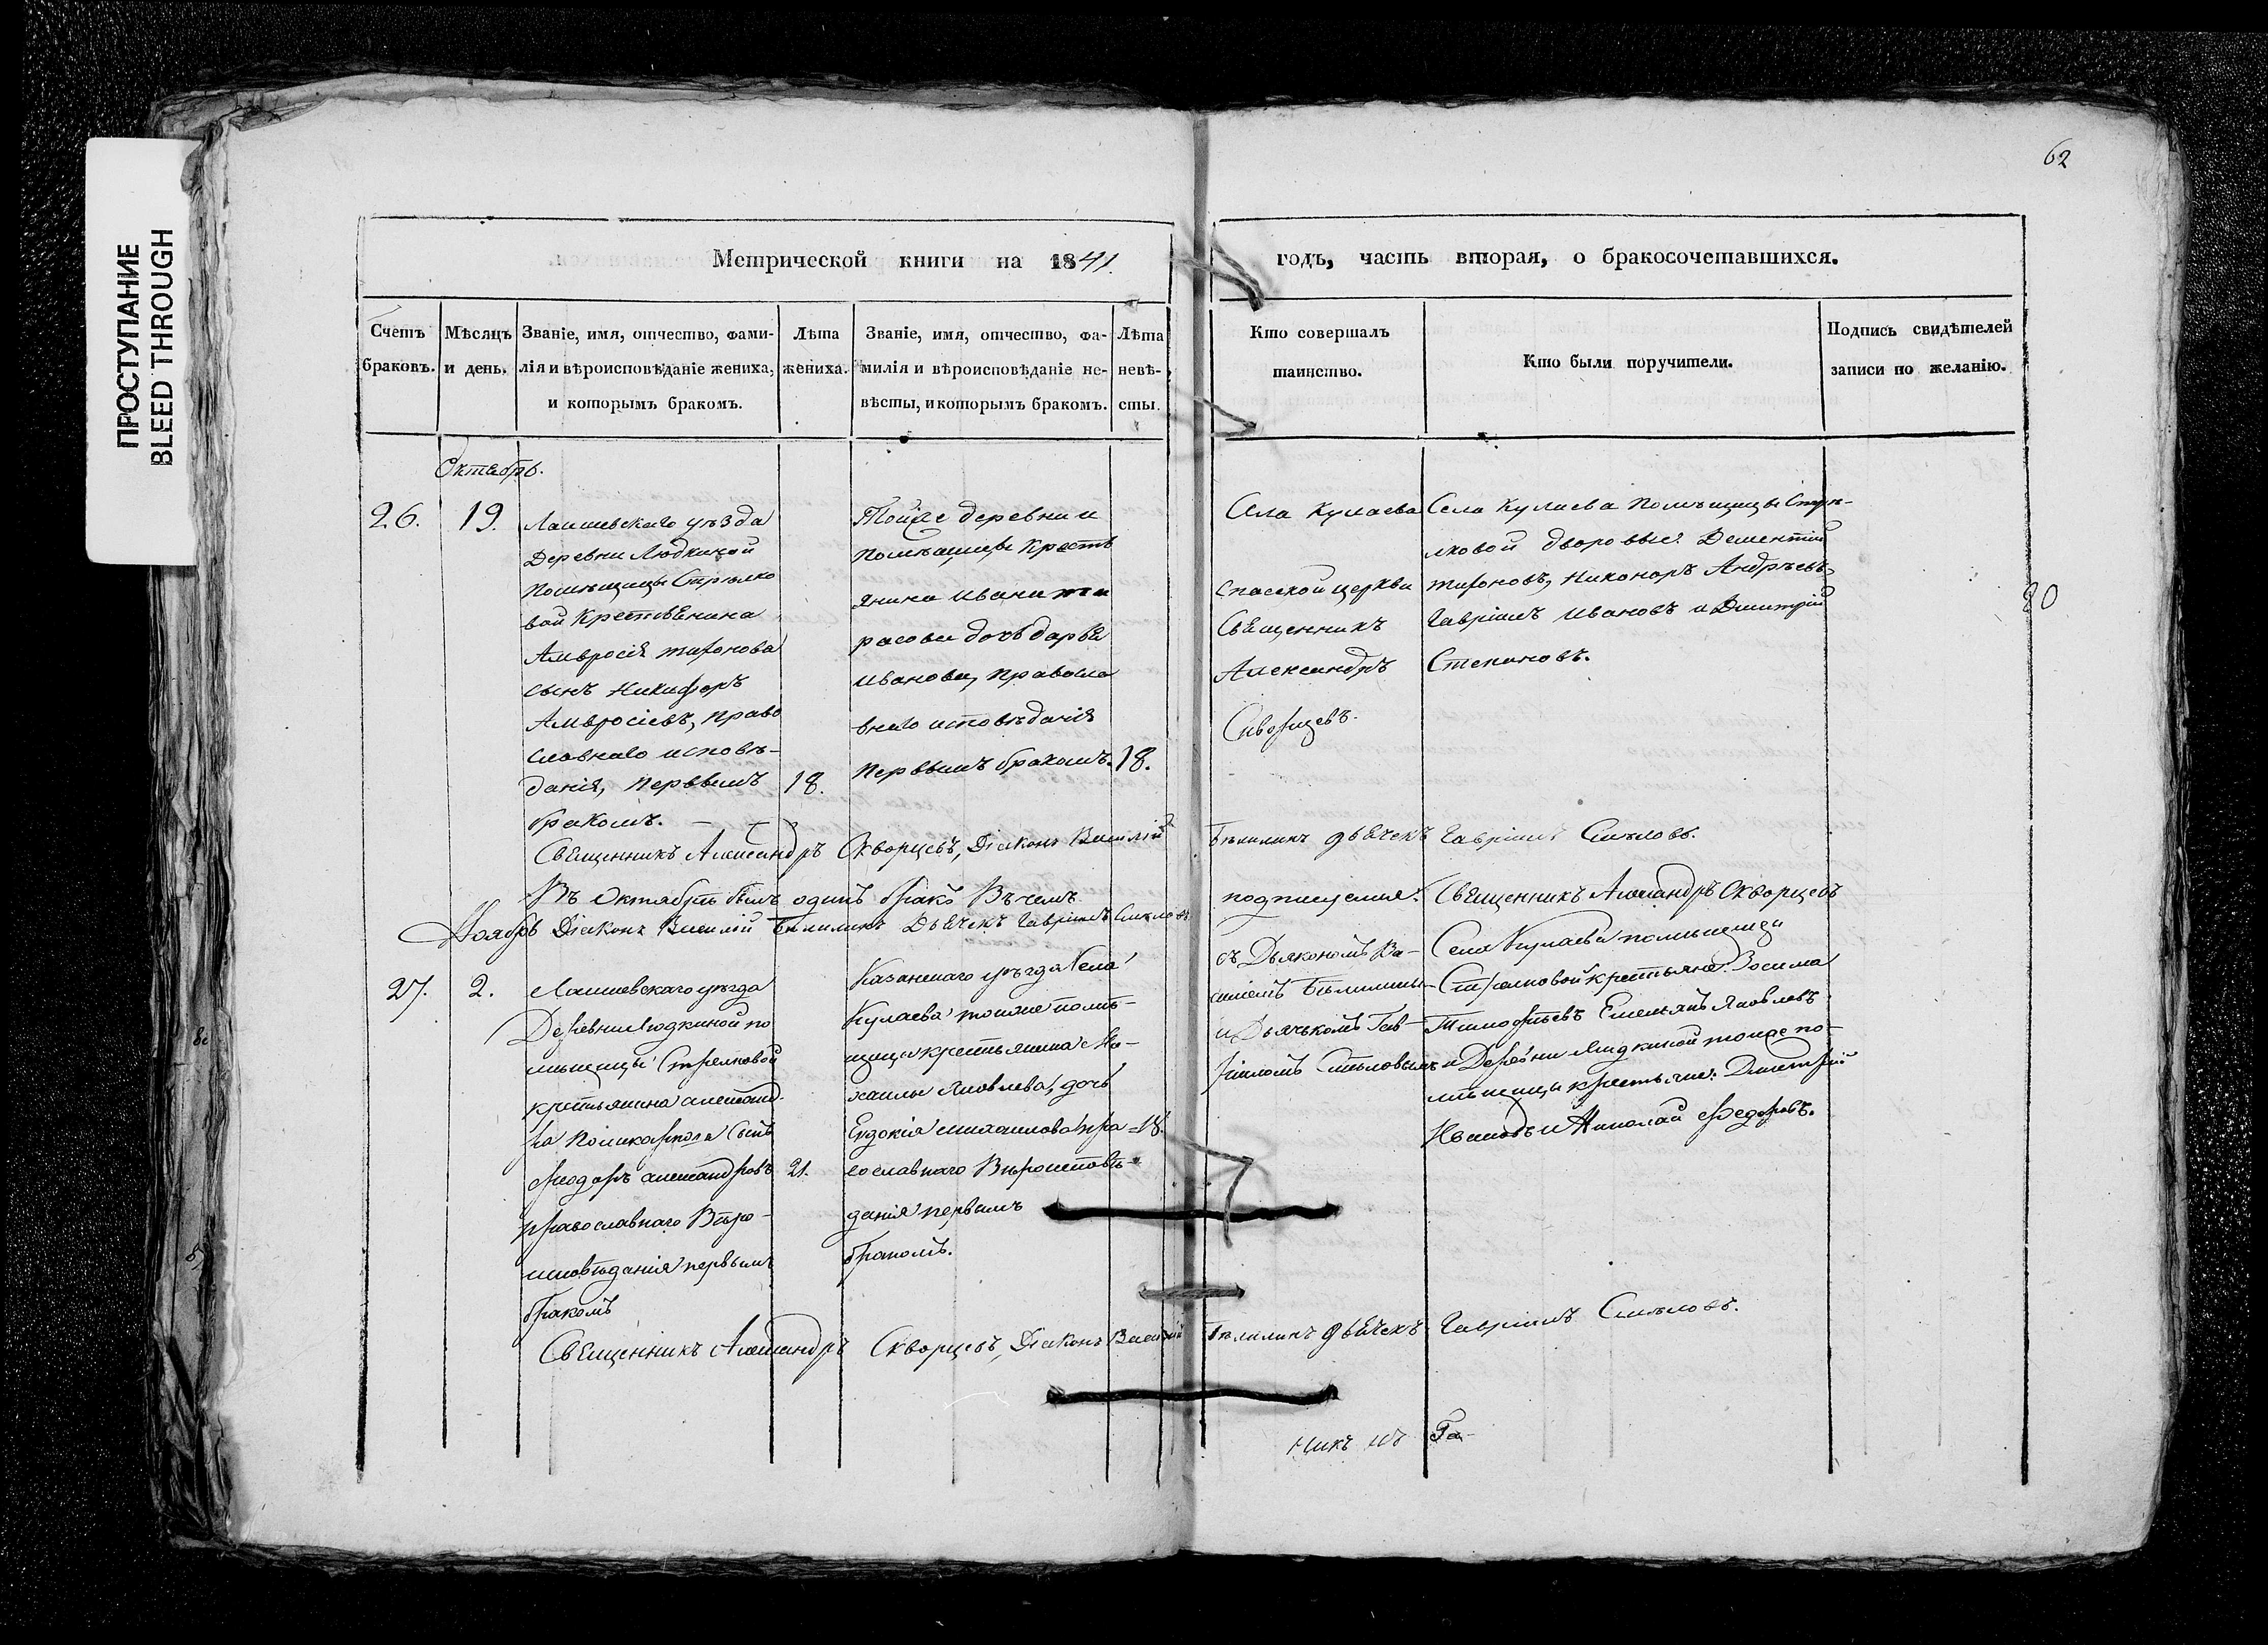 ПРОСТУПАНИЕ
BLEED THROUGH
62
Метрической книги на 1841.
годъ, часть вторая, о бракосочетавшихся.
Счетъ
браковъ.
Мѣсяцъ
и день.
Званіе, имя, отчество, фами-
лія и вѣроисповѣданіе жениха,
и которымъ бракомъ.
Лѣта
жениха.
Званіе, имя, отчество, фа-
милія и вѣроисповѣданіе не-
вѣсты, и которымъ бракомъ.
Лѣта
невѣ-
сты.
Кто совершалъ
таинство.
Кто были поручители.
Подпись свидѣтелей
записи по желанію.
Октябрь.
26.
19.
Лаишевскаго уѣзда
Деревни Людкиной
Помѣщицы Стрѣлко
вой Крестьянина
Амвросія Тифонова
сынъ Никифоръ
Амвросіевъ, право
славнаго исповѣ-
данія, первымъ
бракомъ.
18.
Тойже деревни и
помѣщицы Кресть
янина Ивана та
расова дочь дарья
Иванова, Правосла
внаго исповѣданія
Первымъ бракомъ.
18.
Села Кулаева
Спаской церкви
Священникъ
Александръ
Скворцевъ.
Села Кулаева Помѣщицы Стрѣ-
лковой дворовые: Дементій
Тифоновъ, Никоноръ Андрѣевъ,
Гавріилъ Ивановъ и Дмитрій
Степановъ.
80
Священникъ Александръ Скворцевъ, Діаконъ Василій Бѣлилинъ дьячекъ Гавріилъ Смѣловъ.
Въ Октябрѣ былъ одинъ бракъ Въ чемъ подписуемся: Священникъ Александръ Скворцевъ
Ноябрь Діаконъ Василій Бѣлилинъ Дьячекъ Гавріилъ Смѣловъ
27.
2.
Лаишевскаго уѣзда
Деревни Людкиной по
мѣщицы Стрелковой
крестьянина Александ-
ра Поликарпова Сынъ
Феодоръ Александровъ
православнаго Вѣро-
исповѣданія первымъ
бракомъ
21.
Казанскаго уѣзда Села
Кулаева тоиже помѣ-
щицы крестьянина Ми-
хаилы Яковлева, дочь
Евдокія Михаилова пра-
вославнаго Вѣроисповѣ-
данія первымъ
бракомъ.
18.
съ Дьякономъ Ва-
силіемъ Бѣлилин-
и Дьячькомъ Гав-
ріиломъ Смѣловымъ
Села Кулаева помѣщицы
Стрелковой крестьяне: Зосима
Тимофѣевъ Емельянъ Яковлевъ
и Деревни Людкиной тоиже по-
мѣщицы крестьяне: Дмитрій
Ивановъ и Николай Федоровъ.
Священникъ Александръ Скворцевъ, Діаконъ Василій Бѣлилинъ дьячекъ Гавріилъ Смѣловъ.
никъ
Га-